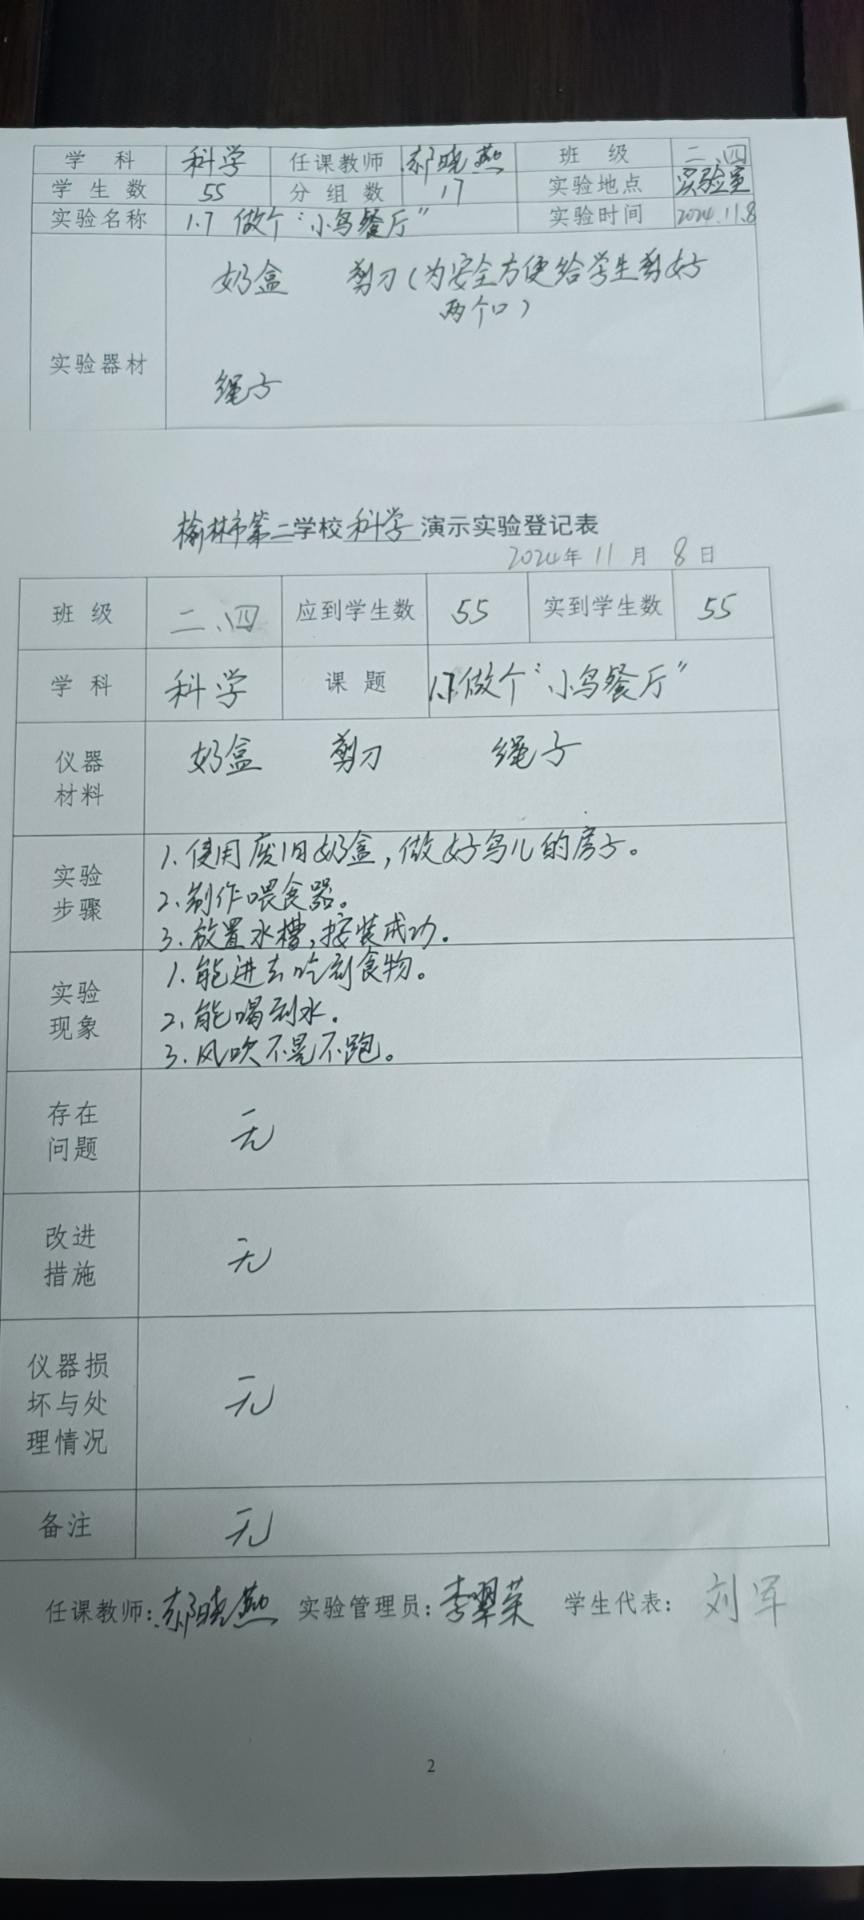 学 科 科学 任课教师 郝晓燕 班 级 二、四
学 生 数 55 分 组 数 17 实验地点 实验室
实验名称 1.7 做个“小鸟餐厅” 实验时间 2024.11.8
奶盒 剪刀(为安全方便给学生剪好
两个口)
实验器材
绳子
榆林市第二学校科学演示实验登记表
2024年 11 月 8 日
班 级 二、四 应到学生数 55 实到学生数 55
学 科 科学 课 题 1.7做个“小鸟餐厅”
仪器
材料
奶盒 剪刀 绳子
实验
步骤
1.使用废旧奶盒,做好鸟儿的房子。
2.制作喂食器。
3.放置水槽,按装成功。
实验
现象
1.能进去吃到食物。
2.能喝到水。
3.风吹不晃不跑。
存在
问题
无
改进
措施
无
仪器损
坏与处
理情况
无
备注 无
任课教师:郝晓燕 实验管理员:李翠荣 学生代表: 刘军
2